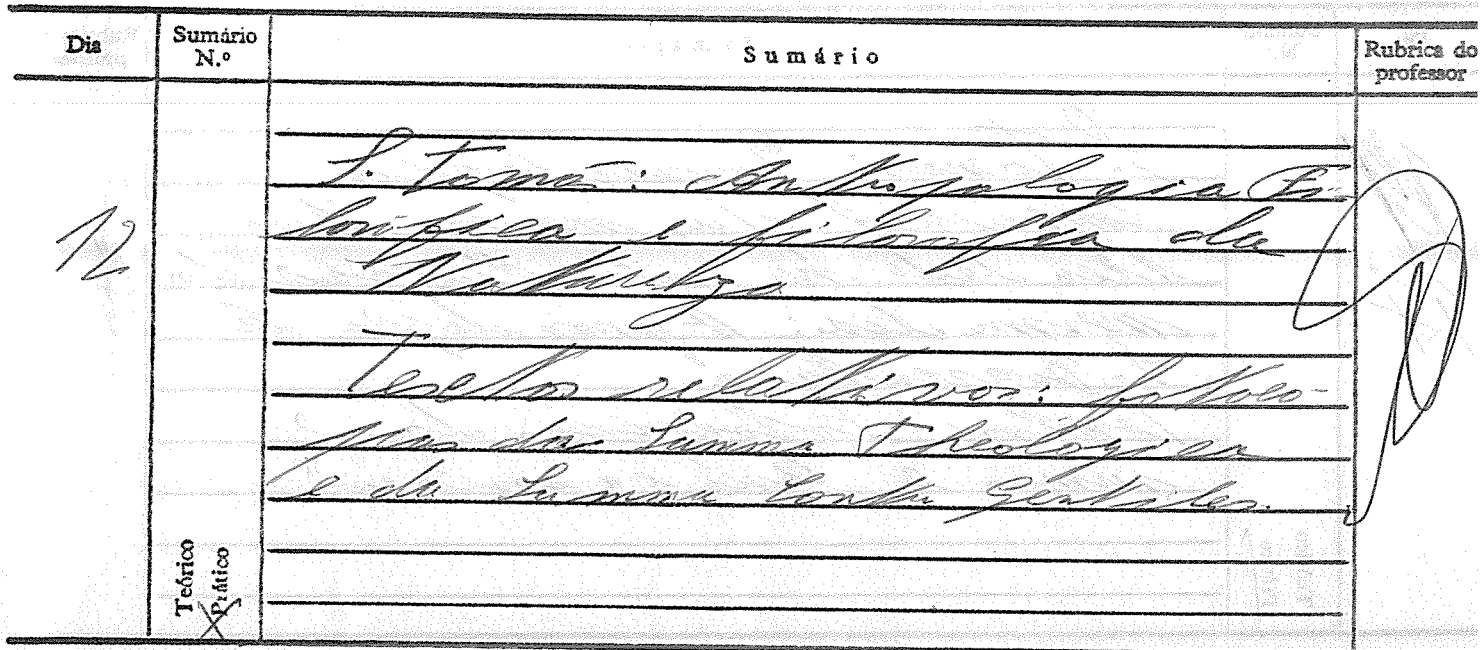 Dia
Sumário N.º
Sumário
Rubrica do professor
12
S. Tomás: Anthropologia Fi-
losófica e filosofia da
Natureza
Textos relativos: fotoco-
pias da Summa Theologica
e da Summa Contra Gentiles.
Teórico
Prático